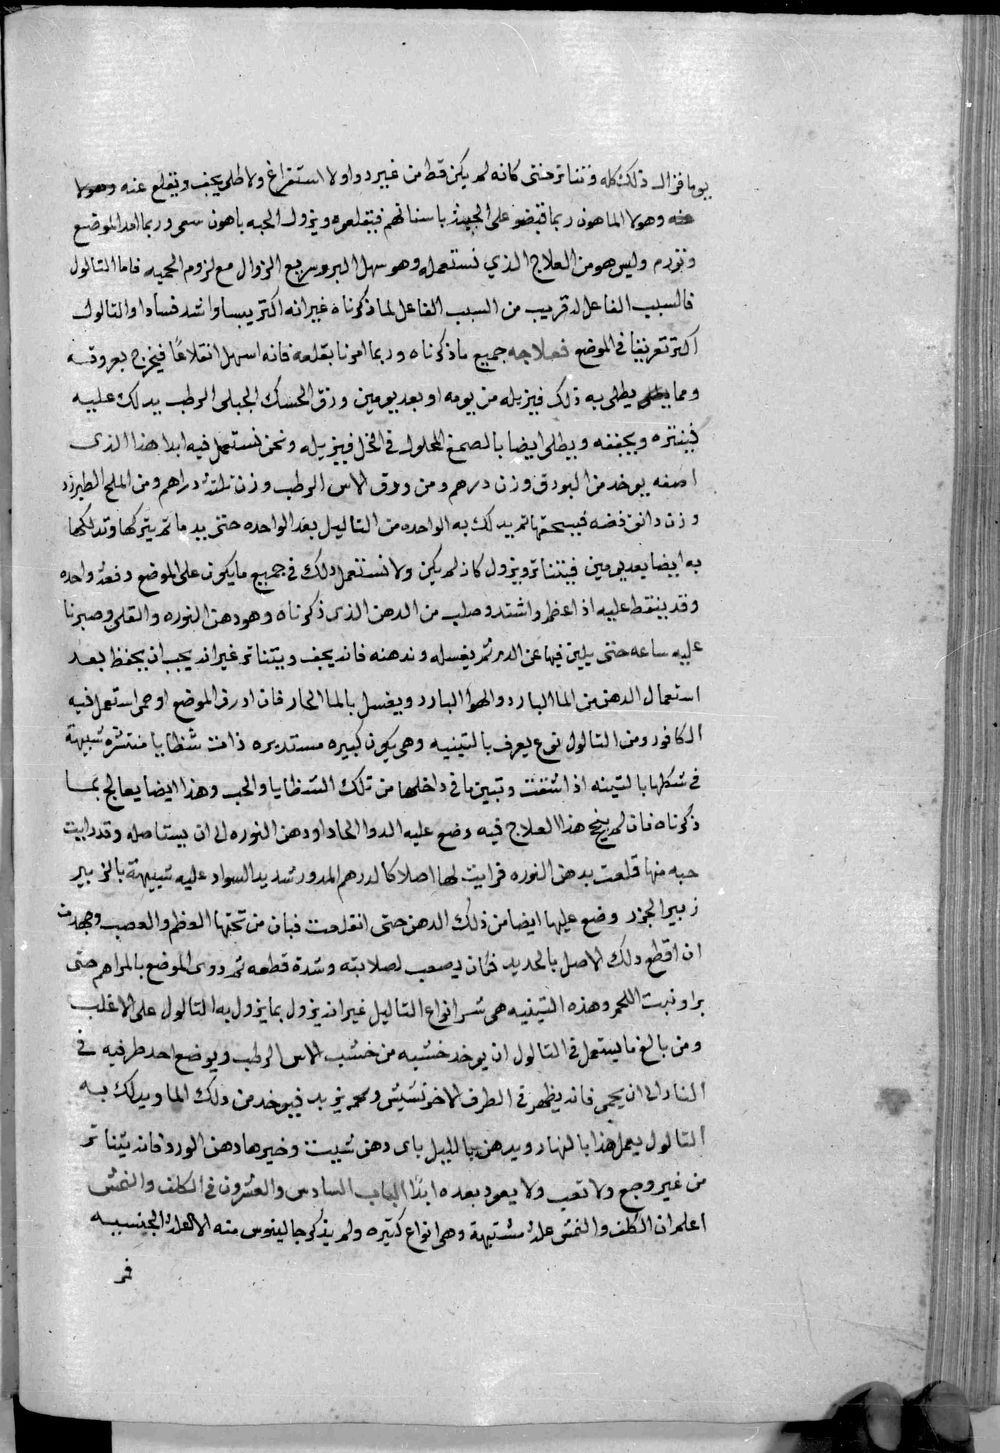 يوما فزال ذلك كله وتناثر حتى كانه لم يكن قط من غير دوا ولا استفراغ ولا طلى يجفف وتقلع عنه وهولا
عنه وهولا الماهون ربما قبضو على الحبه باسنانهم فيقلعوه ويزول الحبه باهون سعى وربما امد الموضع
وتورم وليس هو من العلاج الذي نستعمله وهو سهل البرو سريع الزوال مع لزوم الحميه فاما الثالول
فالسبب الفاعل له قريب من السبب الفاعل لما ذكرناه غير انه اكثر يبسا واشد فسادا والثالول
اكثر تعريقا في الموضع فعلاجه جميع ما ذكرناه وربما امرنا بقلعه فانه اسهل انقلاعا فيخرج بعروقه
ومما يطلى به ذلك فيزيله من يومه او بعد يومين ورق الحسك الجبلى الرطب يدلك عليه
فينثره ويجففه ويطلى ايضا بالصمغ المحلول في الخل فيزيله ونحن نستعمل فيه ابدا هذا الذى
اصفه يوخد من البورق وزن درهم ومن ورق الاس الرطب وزن ثلثة دراهم ومن الملح الطبرزد
وزن دانق فضه فيسحق ثم يدلك به الواحده من الثاليل بعد الواحده حتى يدما ثم يتركها وتدلكها
به ايضا بعد يومين فيتناثر ويزول كان لم يكن ولا نستعمل ذلك في جميع ما يكون على الموضع دفعة واحده
وقد ينقط عليه اذا عظم واشتد وصلب من الدهن الذى ذكرناه وهو دهن النوره والقلى وصبرنا
عليه ساعه حتى يلين فيها عن الدر ثم يغسله وندهنه فانه يجف ويتناثر غير انه يجب ان يحفظ بعد
استعمال الدهن من الما البارد والهوا البارد ويغسل بالما الحار فان ادرق الموضع او حمى استعمل فيه
الكافور ومن الثالول نوع يعرف بالتينيه وهى يكون كبيره مستديره ذات شظايا منتشره شبيهة
في شكلها بالتينه اذا شققت وتبين ما في داخلها من تلك الشظايا والحب وهذا ايضا يعالج بما
ذكرناه فان لم ينجح هذا العلاج فيه وضع عليه الدوا الحاد او دهن النوره الى ان يستاصله وقد رايت
حبه منها قلعت بدهن النوره فرايت لها اصلا كالدرهم المدور شديد السواد عليه شبيهة بالزبير
زبير الجزر وضع عليها ايضا من ذلك الدهن حتى انقلعت فبان من تحتها العظم والعصب وجهدت
ان اقطع ذلك الاصل بالحديد فكان يصعب لصلابته وشدة قطعه ثم دووى الموضع بالمراهم حتى
برا ونبت اللحم وهذه التينيه هى شر انواع الثاليل غير انه يزول بما يزول به الثالول على الاغلب
ومن بالغ ما يستعمل في الثالول ان يوخد خشبه من خشب الاس الرطب ويوضع احد طرفيه في
النار الى ان يحمى فانه يظهر في الطرف الاخر نشيش ومعه زبد فيوخد من ذلك الما ويدلك به
الثالول يعمل هذا بالنهار ويدهن بالليل باى دهن شيت وخيرها دهن الورد فانه يتناثر
من غير وجع ولا تعب ولا يعود بعده ابدا الباب السادس والعشرون في الكلف والنمش
اعلم ان الكلف والنمش علة مشتبهة وهى انواع كثيره ولم يذكر جالينوس منه الا العلة الجنسيه